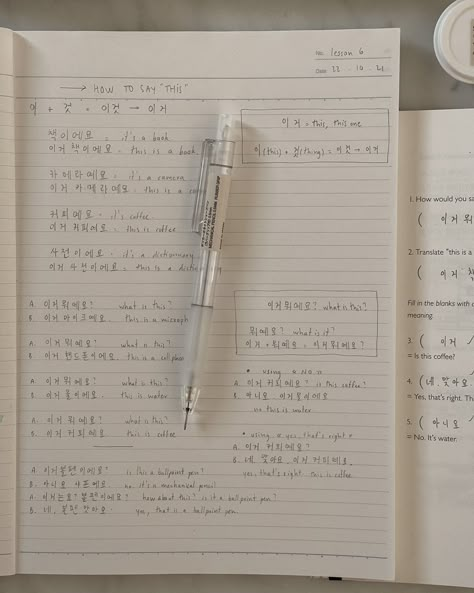 No. lesson 6
Date 22 . 10 . 21
→ HOW TO SAY "THIS"
이 + 것 = 이것 → 이거
이거 = this, this one
이 (this) + 것 (thing) = 이것 → 이거
책이에요 = it's a book
이거 책이에요 = this is a book
카메라예요 = it's a camera
이거 카메라예요 = this is a
커피예요 = it's coffee
이거 커피예요 = this is coffee
사전이에요 = it's a dictionary
이거 사전이에요 = this is a
A. 이거 뭐예요? what is this?
B. 이거 마이크예요. this is a
A. 이거 뭐예요? what is this?
B. 이거 핸드폰이에요. this is a cellphone
A. 이거 뭐예요? what is this?
B. 이거 물이에요. this is water
A. 이거 뭐예요? what is this?
B. 이거 커피예요. this is coffee
A. 이거 볼펜이에요? is this a ballpoint pen?
B. 아니요. 샤프예요. no. it's a mechanical pencil
A. 이거는요? 볼펜이에요? how about this? is it a ballpoint pen?
B. 네, 볼펜 맞아요. yes, that is a ballpoint pen.
이거 뭐예요? what is this?
뭐예요? what is it?
이거 + 뭐예요 = 이거 뭐예요?
* using a no
A. 이거 커피예요? is this coffee?
B. 아니요. 이거 물이에요
no this is water
* using a yes, that's right
A. 이거 커피예요?
B. 네. 맞아요. 이거 커피예요.
yes, that's right. this is coffee.
1. How would you sa
( 이거 뭐
2. Translate "this is a
( 이거 책
Fill in the blanks with
meaning.
3. ( 이거
= Is this coffee?
4. ( 네, 맞아요.
= Yes, that's right. Th
5. ( 아니요
= No. It's water.